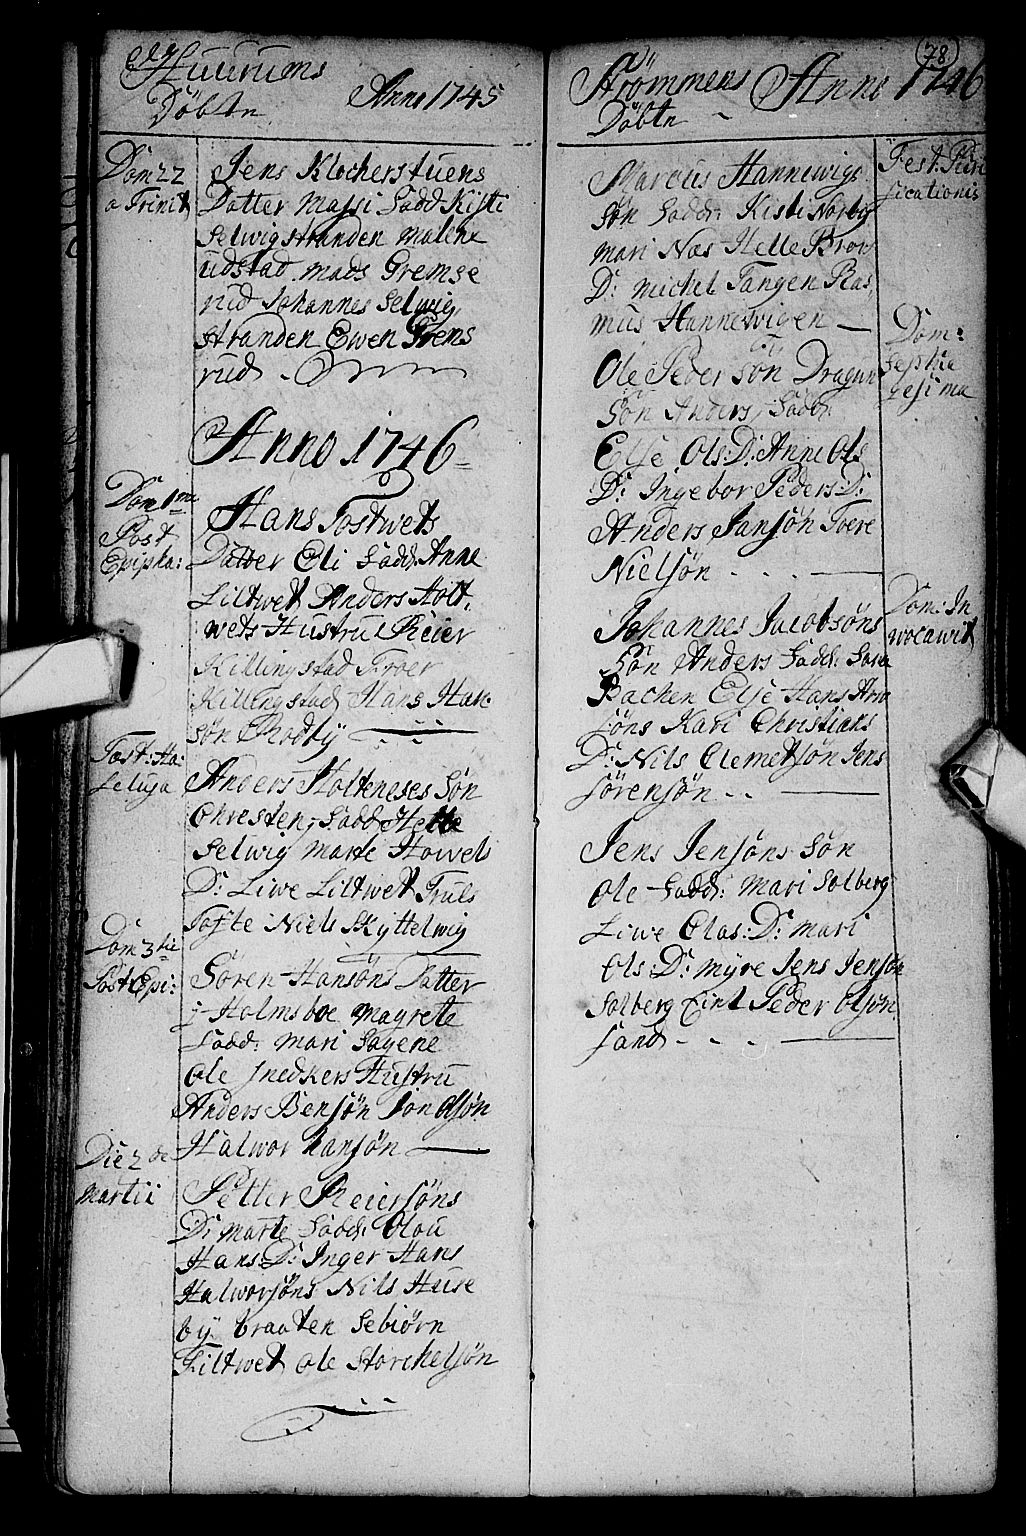 Huurums
Döbte Anno 1745
Dom 22
a Trinit
Jens Klocherstuens
Datter Massi Fadd Kisti
Selwigstranden Malene
udstad mads Gremse
rud Johannes Selwig
stranden Ewen Grems
rud
Anno 1746
Dom 1me
Post
Epipha:
Hans Tostwets
Datter Eli Fadd: Anne
Liltwet Anders Holt,
wets Hustrue Reier
Killingstad Troer
Killingstad Hans Han
sön Rodby
Fest: Ha:
leluja
Anders Holteneses Sön
Christen, Fadd Helle
Selwig Marte Howels
D: Liwe Liltwet Truls
Tofte Niels Skyttelwig
Dom 3tie
Post Epi:
Sören Hansöns Datter
j Holmsboe Magrete
Fadd: Mari Sagene
Ole Snedkers Hustru
Anders Bensön Jon Olsön
Halwor hansön
Die 2 de
Martii
Petter Reiersöns
D: Marte Fadd: Olou
Hans: D: Inger Hans
Halworsöns Nils Huse
by braaten Sebiörn
Liltwet Ole Storchelsön
78
Strömmens Anno 1746
Döbte
Fest. Puri
ficationis
Marcus Hannewigs
Sön Fadd: Kisti Norby
mari Nas Helle Brow
D: michel Tangen Ras,
mus Hannewigen
Dom:
Septua
gesima
Ole Peder Sön Dragun
Sön Anders, Fadd:
Else Ols: D: Anne Ols
D: Ingebor Peders: D:
Anders Jansön Tore
Nielsön
Dom: In
vocavit
Johannes Jacobsöns
Sön Anders Fadd: Sara
Bachen Else Hans Arn
söns Kari Christians
D: Nils Clemetsön Jens
Sörensön
Jens Jensöns Sön
Ole Fadd: Mari Solberg
Liwe Olas: D: Mari
Ols: D: Myre Jens Jensön
Solberg Eint Peder Olsön
Sand